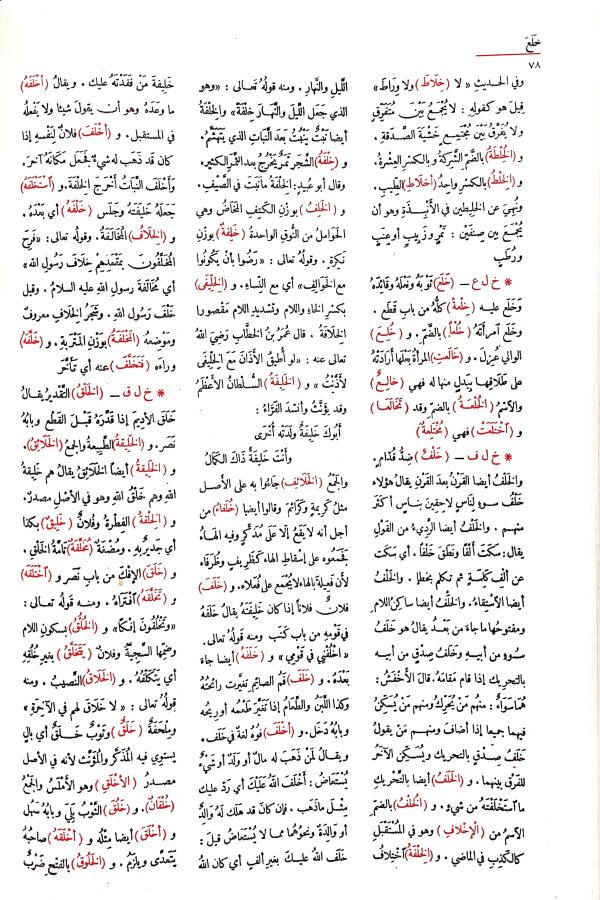 خَلَعَ
٧٨
وفي الحديث « لا (خِلَاطَ) ولا وِرَاطَ »
قِيلَ هو كقَوْلِهِ : لا يُجْمَعُ بَيْنَ مُتَفَرِّقٍ
ولا يُفَرَّقُ بَيْنَ مُجْتَمِعٍ خَشْيَةَ الصَّدَقَةِ .
و (الخُلْطَةُ) بالضَّمِّ الشِّرْكَةُ وبالكسْرِ العِشْرَةُ.
و (الخِلْطُ) بالكسْرِ واحِدُ (أخلاطِ) الطِّيبِ.
ونُهِيَ عن الخَلِيطَيْنِ في الأَنْبِذَةِ وهو أن
يُجْمَعَ بين صِنْفَيْنِ : تَمْرٍ وزَبِيبٍ أو عِنَبٍ
ورُطَبٍ
* خ ل ع – (خَلَعَ) ثَوْبَهُ ونَعْلَهُ وقائِدَهُ
وخَلَعَ عليه (خِلْعَةً) كلُّه من باب قَطَع .
وخَلَعَ آمرأتَهُ (خُلْعًا) بالضَّمِّ . و (خُلِعَ)
الوالي عُزِلَ . و (خالَعَتِ) المرأةُ بَعْلَها أرادَتْهُ
على طَلَاقِها ببَدَلٍ منها له فهي (خالِعٌ)
والآسْمُ (الخُلْعَةُ) بالضمِّ وقد (تَخَالَعَا)
و (اخْتَلَعَتْ) فهي (مُخْتَلِعَةٌ)
* خ ل ف – (خَلْفُ) ضِدُّ قُدَّامٍ.
والخَلْفُ أيضا القَرْنُ بعدَ القَرْنِ يقالُ هؤلاء
خَلْفُ سوءٍ لناسٍ لاحِقِينَ بناسٍ أكثَرَ
منهم . والخَلْفُ أيضا الرَّدِيءُ من القَوْلِ
يقال: سَكَتَ أَلْفًا ونَطَقَ خَلْفًا . أي سكَتَ
عن أَلْفِ كَلِمَةٍ ثم تكلَّم بخَطإٍ . والخَلْفُ
أيضا الآسْتِقَاءُ . والخَلْفُ أيضا ساكِنُ اللامِ
ومفتوحُها ما جاءَ من بَعْدُ يقالُ هو خَلْفُ
سُوءٍ من أبيه وخَلَفُ صِدْقٍ من أبيه
بالتحريك إذا قام مَقَامَهُ . قال الأَخْفَشُ :
هُمَا سَوَاءٌ : منهم مَنْ يُحَرِّكُ ومنهم مَنْ يُسَكِّنُ
فيهما جميعا إذا أضافَ ومنهم مَنْ يَقُولُ
خَلَفُ صِدْقٍ بالتحريك ويُسَكِّن الآخَرَ
للفَرْقِ بينهما . و (الخَلَفُ) أيضا بالتَّحْرِيك
ما آستَخْلَفْتَهُ من شيءٍ . و (الخُلْفُ) بالضمِّ
الاسْمُ من (الإِخْلافِ) وهو في المُسْتَقْبَلِ
كالكَذِبِ في الماضي . و (الخِلْفَةُ) آخْتِلافُ
اللَّيلِ والنَّهارِ . ومنه قولُهُ تعالى : «وهو
الذي جَعَلَ اللَّيلَ والنَّهارَ خِلْفَةً» والخِلْفَةُ
أيضا نَبْتٌ يَنْبُتُ بعدَ النَّبَاتِ الذي يَتَهَشَّمُ.
و (خِلْفَةُ) الشَّجَرِ ثَمَرٌ يَخْرُجُ بعدَ الثَّمَرِ الكثيرِ.
وقال أبو عُبَيدٍ: الخِلْفَةُ ما نَبَتَ في الصَّيْفِ.
و (الخَلِفُ) بوَزْنِ الكَتِفِ المَخَاضُ وهي
الحَوَامِلُ من النُّوقِ الواحِدَةُ (خَلِفَةٌ) بوَزْنِ
نَكِرَةٍ . وقولُهُ تعالى : «رَضُوا بأنْ يكُونُوا
مع الخَوالِفِ» أي مع النِّساءِ . و (الخِلِّيفَى)
بكَسْرِ الخاءِ واللامِ وتشديدِ اللامِ مَقْصورا
الخِلَافَةُ . قال عُمَرُ بنُ الخطَّابِ رَضِيَ اللهُ
تعالى عنه : «لو أُطِيقُ الأَذَانَ مَعَ الخِلِّيفَى
لَأَذَّنْتُ » و (الخَلِيفَةُ) السُّلطانُ الأعْظَمُ
وقد يؤنَّثُ وأنشَدَ الفَرَّاءُ :
أَبُوكَ خَلِيفَةٌ وَلَدَتْهُ أُخْرَى
وأَنْتَ خَلِيفَةٌ ذَاكَ الكَمَالُ
والجَمْعُ (الخَلَائِفُ) جاءُوا به على الأَصْل
مثلُ كَرِيمَةٍ وكَرَائمَ . وقالوا أيضا (خُلَفاءُ) من
أجل أنه لا يَقَعُ إلَّا على مُذَكَّرٍ وفيه الهاءُ
جَمَعُوه على إسْقاطِ الهاءِ كَظَرِيفٍ وظُرَفَاءَ
لأن فَعِيلَةَ بالهاءِ لا يُجْمَعُ على فُعَلاءَ . و (خَلَفَ)
فلانٌ فلاناً إذا كان خَلِيفَتَهُ يقالُ خَلَفَهُ
في قَوْمِهِ من باب كَتَبَ ومنه قولُهُ تعالى
«اخْلُفْنِي في قَوْمِي» و (خَلَفَهُ) أيضا جاءَ
بَعْدَهُ . و (خَلَفَ) فَمُ الصائمِ تغيَّرتْ رائحتُهُ
وكذا اللَّبَنُ والطَّعَامُ إذا تَغَيَّرَ طَعْمُه أو رِيحُه
وبابُهُ دَخَلَ . و (أَخْلَفَ) فُوهُ لغةٌ في خَلَفَ.
ويقالُ لمَنْ ذَهَبَ له مالٌ أو وَلَدٌ أو شَيْءٌ
يُسْتَعَاضُ : أَخْلَفَ اللهُ عَلَيْكَ أي رَدَّ عليك
مِثْلَ ما ذَهَبَ . فإن كانَ قد هَلَكَ له والِدٌ
أو والِدَةٌ ونحوُهُما مما لا يُسْتَعَاضُ قيلَ :
خَلَفَ اللهُ عليك بغيرِ أَلِفٍ أي كان اللهُ
خَلِيفَةَ مَنْ فَقَدْتَهُ عليك . ويقالُ (أَخْلَفَهُ)
ما وعَدَهُ وهو أن يَقولَ شيئا ولا يَفْعَلَهُ
في المستقبلِ . و (أَخْلَفَ) فلانٌ لنَفْسِه إذا
كان قد ذَهَبَ له شيءٌ فَجَعَلَ مكانَهُ آخرَ.
وأَخْلَفَ النَّبَاتُ أَخْرَجَ الخِلْفَةَ. و (اسْتَخْلَفَهُ)
جَعَلَهُ خَلِيفَتَهُ وجَلَسَ (خَلْفَهُ) أي بَعْدَهُ .
و (الخِلَافُ) المُخَالَفَةُ. وقولُهُ تعالى: «فَرِحَ
المُخَلَّفُونَ بمَقْعَدِهِم خِلَافَ رَسُولِ اللهِ»
أي مُخَالَفَةَ رسولِ اللهِ عليه السلامُ . وقيل
خَلْفَ رَسُولِ اللهِ . وشَجَرُ الخِلَافِ معروفٌ
ومَوْضِعُهُ (المَخْلَفَةُ) بوَزْنِ المَتْرَبَةِ . و (خَلَّفَهُ)
وراءَه (فَتَخَلَّفَ) عنه أي تَأَخَّرَ
* خ ل ق – (الخَلْقُ) التَّقْدِيرُ يقالُ
خَلَقَ الأَدِيمَ إذا قَدَّرَهُ قَبْلَ القَطْعِ وبابُهُ
نَصَرَ . و (الخَلِيقَةُ) الطَّبِيعَةُ والجمعُ (الخَلَائِقُ).
و (الخَلِيقَةُ) أيضا الخَلَائِقُ يقالُ هم خَلِيقَةُ
اللهِ وهم خَلْقُ اللهِ وهو في الأَصْلِ مصدرٌ.
و (الخِلْقَةُ) الفِطْرَةُ وفُلَانٌ (خَلِيقٌ) بكذا
أي جَدِيرٌ به . ومُضْغَةٌ (مُخَلَّقَةٌ) تامَّةُ الخَلْقِ .
و (خَلَقَ) الإِفْكَ من بابِ نَصَرَ و (اخْتَلَقَهُ)
و (تَخَلَّقَهُ) آفْتَرَاهُ . ومنه قولُهُ تعالى :
«وتَخْلُقُونَ إفْكًا» و (الخُلْقُ) بسكونِ اللامِ
وضمِّها السَّجِيَّةُ وفلانٌ (يَتَخَلَّقُ) بغيرِ خُلُقِه
أي يَتَكَلَّفُهُ . و (الخَلَاقُ) النَّصِيبُ . ومنه
قولُهُ تعالى : « لا خَلاقَ لهم في الآخِرَةِ »
ومِلْحَفَةٌ (خَلَقٌ) وثَوْبٌ خَلَقٌ أي بالٍ
يستوِي فيه المُذَكَّرُ والمُؤَنَّثُ لأنه في الأصل
مصدرُ (الأَخْلَقِ) وهو الأَمْلَسُ والجَمْعُ
(خُلْقَانٌ). و (خَلُقَ) الثَّوْبُ بَلِيَ وبابُه سَهُلَ
و (أَخْلَقَ) أيضا مِثْلُه و (أَخْلَقَهُ) صاحِبُهُ
يَتَعَدَّى ويَلْزَمُ . و (الخَلُوقُ) بالفتح ضَرْبٌ